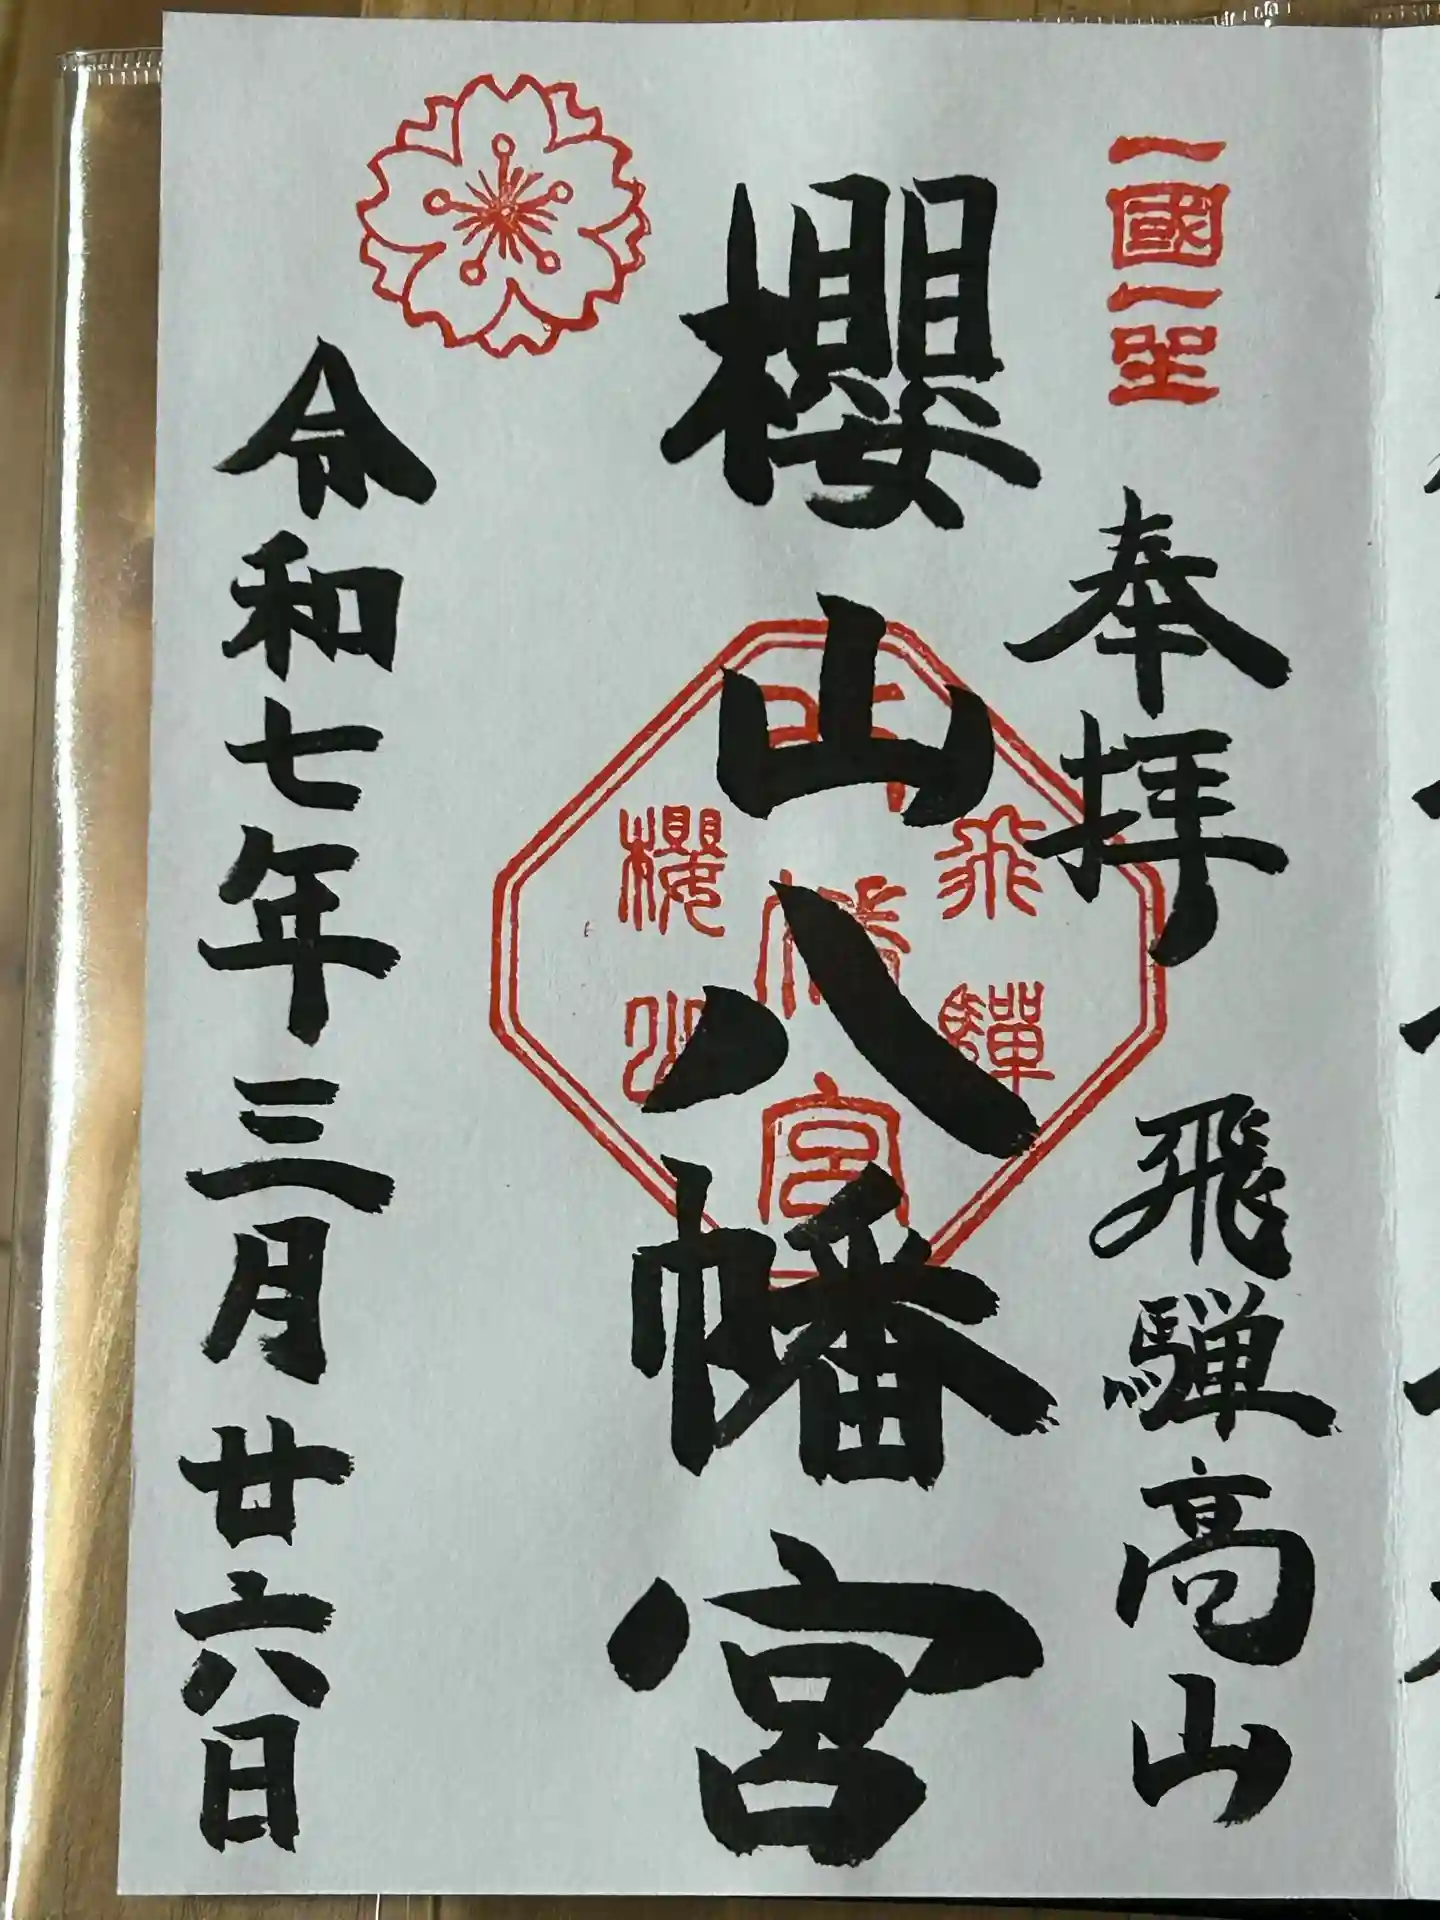 一國一社
奉拝 飛騨高山
櫻山八幡宮
飛驒
八幡宮
櫻山
令和七年三月廿六日